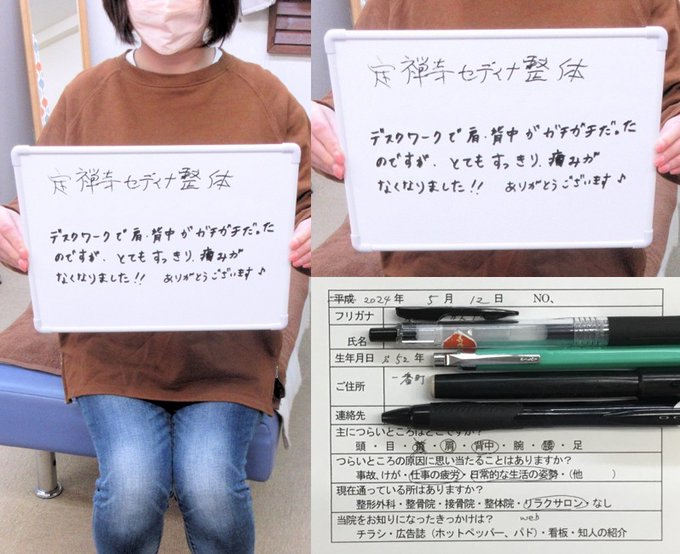 定禅寺セディナ整体
デスクワークで肩・背中がガチガチだった
のですが、とてもすっきり、痛みが
なくなりました!! ありがとうございます♪
定禅寺セディナ整体
デスクワークで肩・背中がガチガチだった
のですが、とてもすっきり、痛みが
なくなりました!! ありがとうございます♪
平成 2024年 5月 12日 NO、
フリガナ
氏名
生年月日 S52年
ご住所 一番町
連絡先
主につらいところはどこですか?
頭・目・首・肩・背中・腕・腰・足
つらいところの原因に思い当たることはありますか?
事故、けが・仕事の疲労・日常的な生活の姿勢・(他 )
現在通っている所はありますか?
整形外科・整骨院・接骨院・整体院・リラクサロン・なし
当院をお知りになったきっかけは? web
チラシ・広告誌(ホットペッパー、パド)・看板・知人の紹介